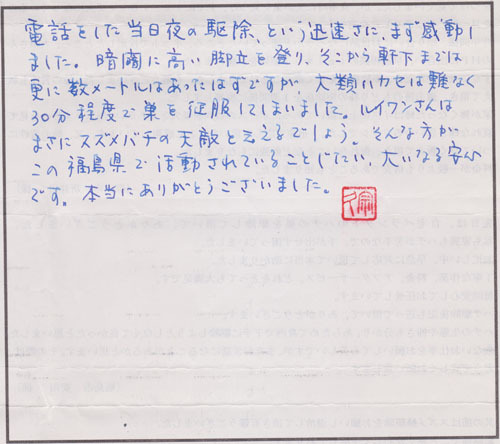 電話をした当日夜の駆除、という迅速さに、まず感動し
ました。暗闇に高い脚立を登り、そこから軒下までは
更に数メートルはあったはずですが、大類ハカセは難なく
30分程度で巣を征服してしまいました。ルイワンさんは
まさにスズメバチの天敵と言えるでしょう。そんな方が
この福島県で活動されていることじたい、大いなる安心
です。本当にありがとうございました。